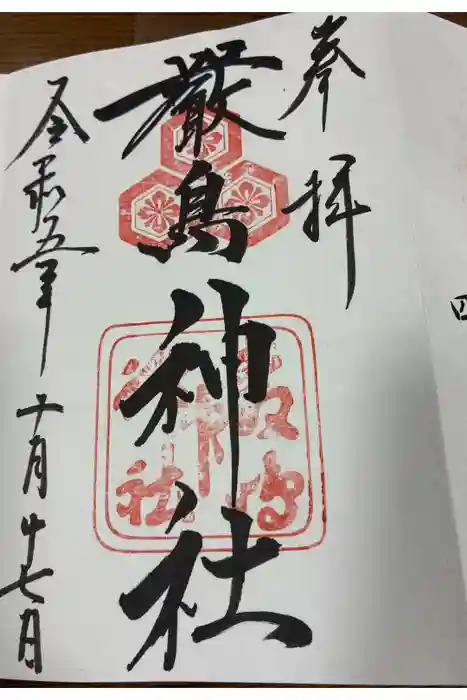 奉拝
厳島神社
令和五年十一月廿七日